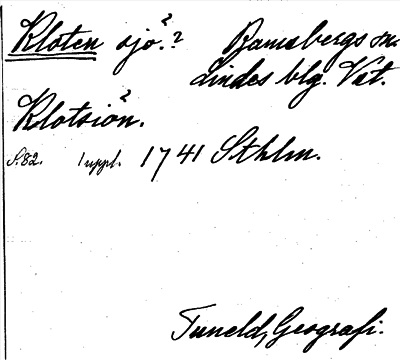 Kloten sjö? ? Ramsbergs sn.
Lindes blg. Vstm.
Klotsiön. ?
S. 82. 1 uppl. 1741 Sthlm.
Tuneld, Geografi.